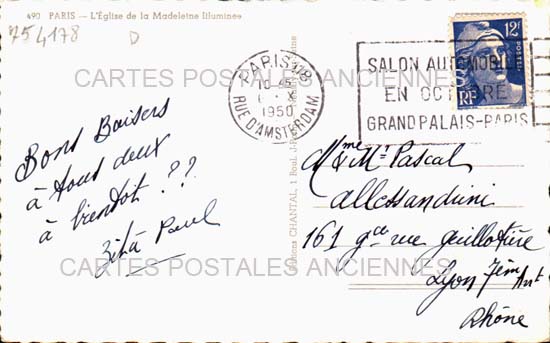 490 PARIS — L'Église de la Madeleine Illuminée
754178
D
PARIS 118
RUE D'AMSTERDAM
1950
SALON AUTOMOBILE
EN OCTOBRE
GRAND PALAIS-PARIS
12F
POSTES
RF
CARTES POSTALES ANCIENNES
Bons Baisers
à tous deux
à bientôt ??
Zita Paul
CHANTAL, 1 Boul.
Mme & Mr Pascal
Allessandrini
161 gde rue Guillotière
Lyon 7ème Arrt
Rhône
CARTES POSTALES ANCIENNES